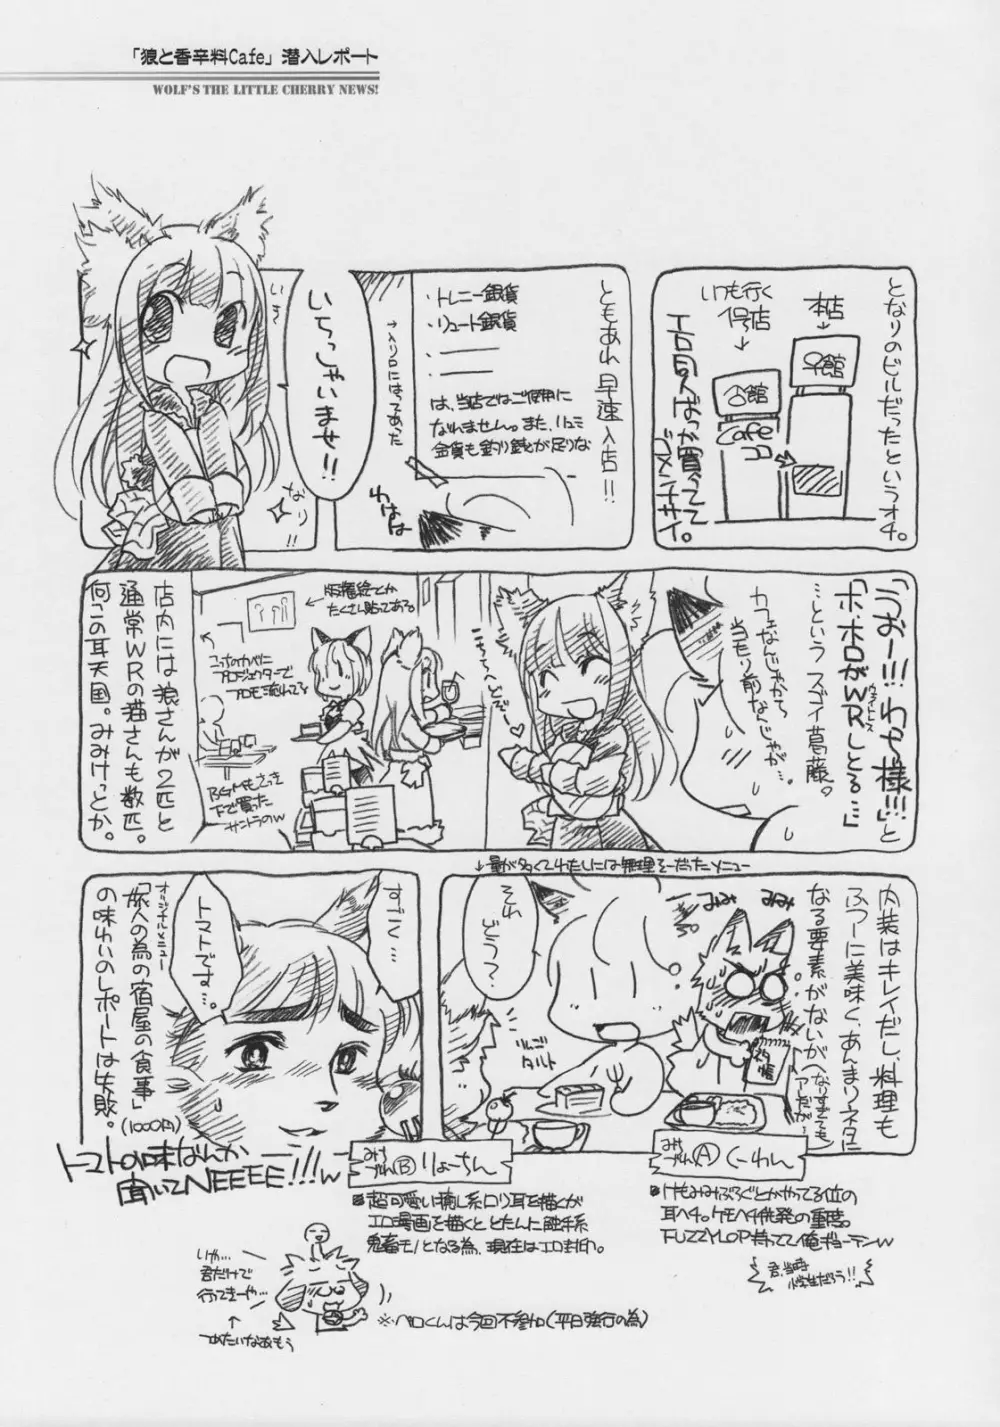 「狼と香辛料Cafe」潜入レポート
WOLF'S THE LITTLE CHERRY NEWS!
となりのビルだったというオチ。
本店
↓
いつも行く
店
↓
館
館
Cafe
ココ
エロ同人ばっか買ってて
ゴメンナサイ。
ともあれ早速入店!!
・トレニー銀貨
・リュート銀貨
・
・
は、当店ではご使用に
なれません。また、リュミ
金貨も釣り銭が足りな
→入り口にはってあった
わはは
いらっしゃいませ!!
なり
!!
「うおー!!!わっか様!!!」と
「ホ、ホロがWRしとる…」
ウェイトレス
…というスゴイ葛藤。
カフェなんじゃから
当たり前なんじゃが…。
こちらへどぞー♡
版権絵とか
たくさん貼ってある。
こっちのカベに
プロジェクターで
プロモ流れてるよ
BGMもさっき
下で買った
サントラのw
店内には狼さんが2匹と
通常WRの猫さんも数匹。
何この耳天国。みみけっとか。
↓量が多くてわたしには無理そーだったメニュー
内装はキレイだし、料理も
ふつーに美味く、あんまりネタに
なる要素がないが
(なりすぎても
アレだが…
みみみ
みみみ
ネタ帳
それ
どう?
りんご
タルト
みけ
づれ
Ⓐ
くーわん
みけ
づれ
Ⓑ
りょーちん
すごく…
トマトです…。
オリジナルメニュー
「旅人の為の宿屋の食事」
(1000円)
の味わいのレポートは失敗。
トマトの味なんか
聞いてNEEEE!!!w
■超可愛い癒し系ロリ耳を描くが
エロ漫画を描くととたんに触手系
鬼畜モノとなる為、現在はエロ封印。
■けもみみぶろぐとかやってる位の
耳ヘチ。ケモヘチ併発の重態。
FUZZYLOP持ってて俺ギョーテンw
君、当時
小学生だろう!!
いや…
君だけで
行ってきーや…
↑
つめたいなあもう
※ペロくんは今回不参加(平日強行の為)